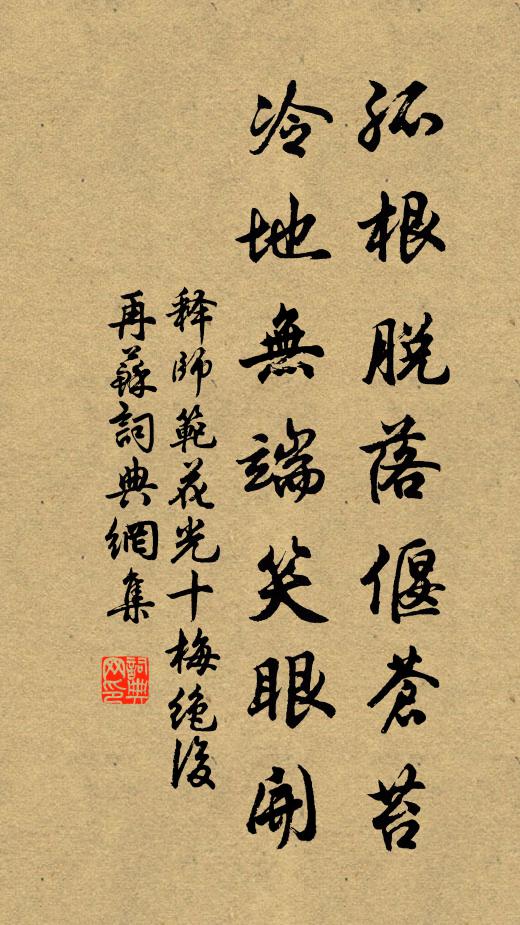 孤根脱落偃蒼苔
冷地無端笑眼開
释師範花光十梅絶後
再蘇詞典網集
詞典网印